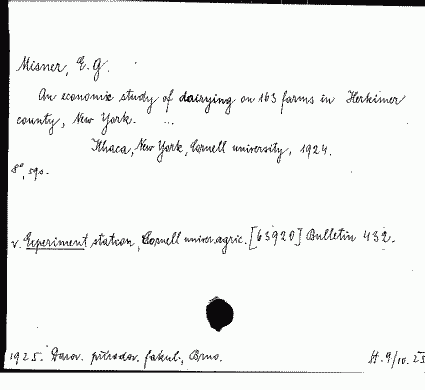 Misner, E. G.
An economic study of dairying on 163 farms in Herkimer
county, New York. ...
Ithaca, New York, Cornell university, 1924.
8°, sps.
v. Experiment station, Cornell univer. agric. [63920] Bulletin 432.
1925. Darov. přírodov. fakul., Brno.
H. 9/10. 25